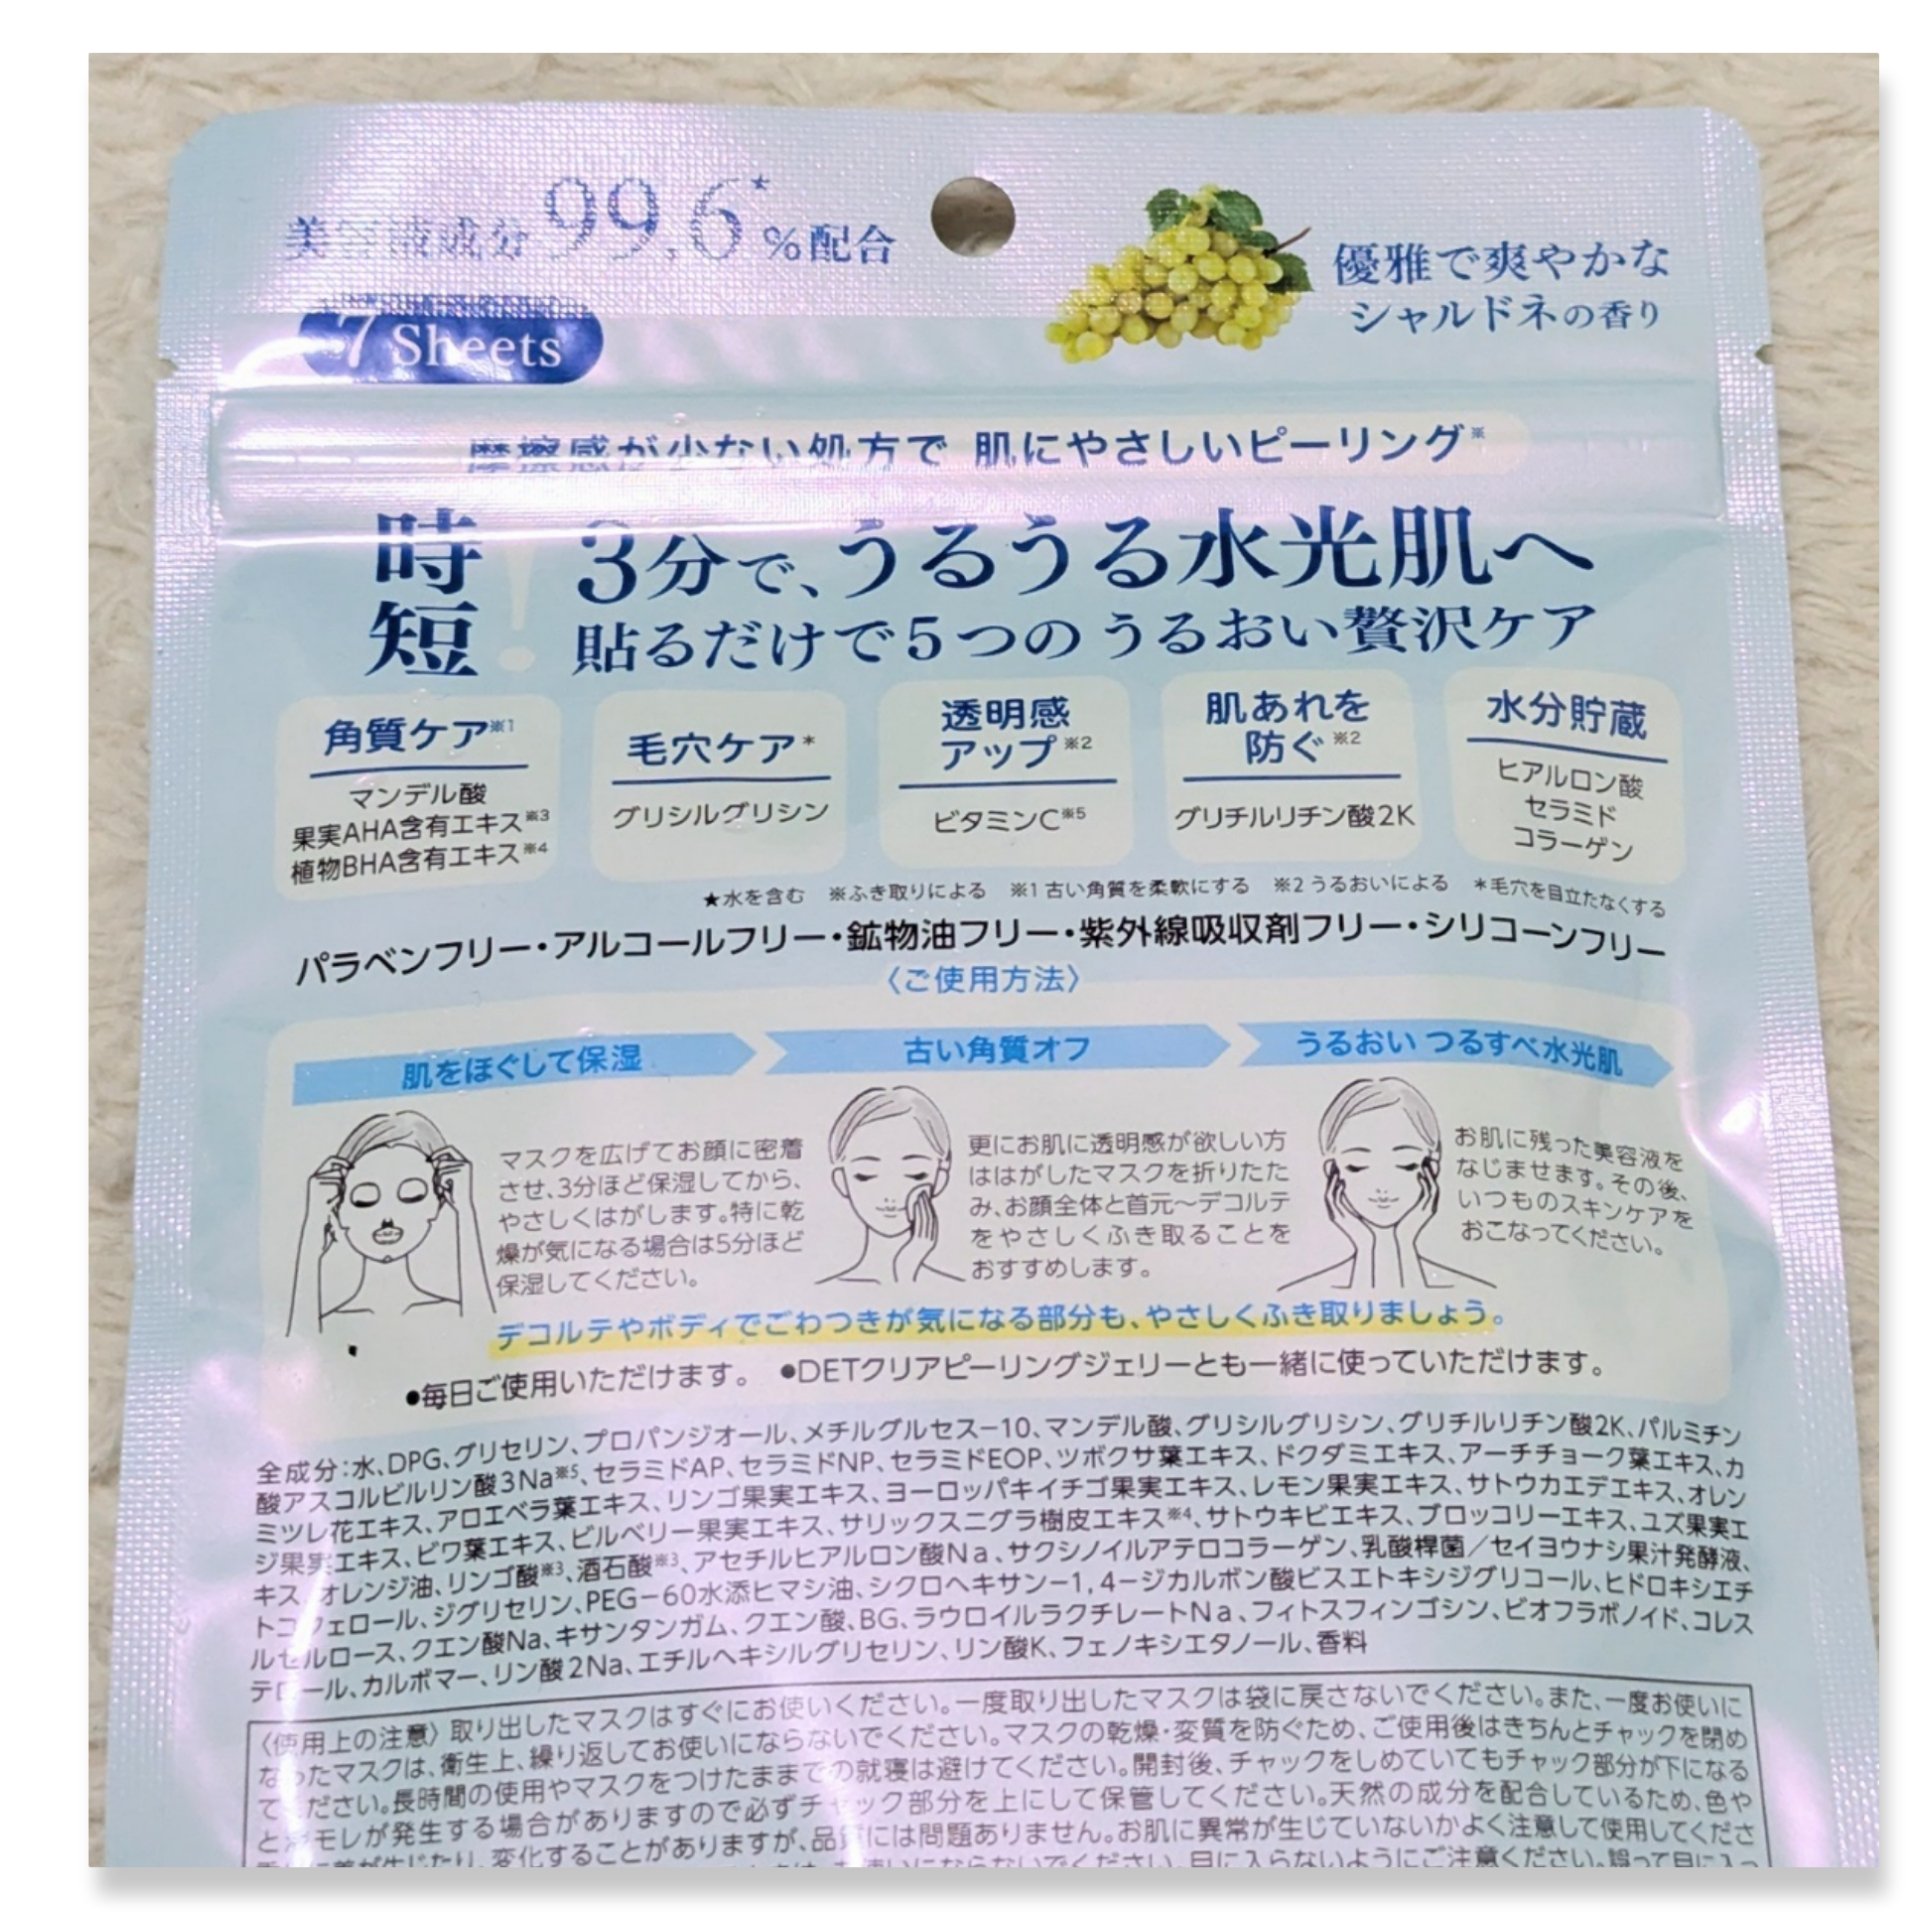 美容液成分99.6★%配合
優雅で爽やかな
シャルドネの香り
7 Sheets
摩擦感が少ない処方で 肌にやさしいピーリング※
時短! 3分で、うるうる水光肌へ
貼るだけで5つの うるおい贅沢ケア
角質ケア※1
マンデル酸
果実AHA含有エキス※3
植物BHA含有エキス※4
毛穴ケア*
グリシルグリシン
透明感
アップ※2
ビタミンC※5
肌あれを
防ぐ※2
グリチルリチン酸2K
水分貯蔵
ヒアルロン酸
セラミド
コラーゲン
★水を含む ※ふき取りによる ※1 古い角質を柔軟にする ※2 うるおいによる *毛穴を目立たなくする
パラベンフリー・アルコールフリー・鉱物油フリー・紫外線吸収剤フリー・シリコーンフリー
〈ご使用方法〉
肌をほぐして保湿
マスクを広げてお顔に密着
させ、3分ほど保湿してから、
やさしくはがします。特に乾
燥が気になる場合は5分ほど
保湿してください。
古い角質オフ
更にお肌に透明感が欲しい方
ははがしたマスクを折りたた
み、お顔全体と首元～デコルテ
をやさしくふき取ることを
おすすめします。
うるおい つるすべ水光肌
お肌に残った美容液を
なじませます。その後、
いつものスキンケアを
おこなってください。
デコルテやボディでごわつきが気になる部分も、やさしくふき取りましょう。
●毎日ご使用いただけます。 ●DETクリアピーリングジェリーとも一緒に使っていただけます。
全成分：水、DPG、グリセリン、プロパンジオール、メチルグルセス−10、マンデル酸、グリシルグリシン、グリチルリチン酸2K、パルミチン
酸アスコルビルリン酸3Na※5、セラミドAP、セラミドNP、セラミドEOP、ツボクサ葉エキス、ドクダミエキス、アーチチョーク葉エキス、カ
ミツレ花エキス、アロエベラ葉エキス、リンゴ果実エキス、ヨーロッパキイチゴ果実エキス、レモン果実エキス、サトウカエデエキス、オレン
ジ果実エキス、ビワ葉エキス、ビルベリー果実エキス、サリックスニグラ樹皮エキス※4、サトウキビエキス、ブロッコリーエキス、ユズ果実エ
キス、オレンジ油、リンゴ酸※3、酒石酸※3、アセチルヒアルロン酸Na、サクシノイルアテロコラーゲン、乳酸桿菌／セイヨウナシ果汁発酵液、
トコフェロール、ジグリセリン、PEG−60水添ヒマシ油、シクロヘキサン−1,4−ジカルボン酸ビスエトキシジグリコール、ヒドロキシエチ
ルセルロース、クエン酸Na、キサンタンガム、クエン酸、BG、ラウロイルラクチレートNa、フィトスフィンゴシン、ビオフラボノイド、コレス
テロール、カルボマー、リン酸2Na、エチルヘキシルグリセリン、リン酸K、フェノキシエタノール、香料
〈使用上の注意〉取り出したマスクはすぐにお使いください。一度取り出したマスクは袋に戻さないでください。また、一度お使いに
なったマスクは、衛生上、繰り返してお使いにならないでください。マスクの乾燥・変質を防ぐため、ご使用後はきちんとチャックを閉め
てください。長時間の使用やマスクをつけたままでの就寝は避けてください。開封後、チャックをしめていてもチャック部分が下になる
と液モレが発生する場合がありますので必ずチャック部分を上にして保管してください。天然の成分を配合しているため、色や
差が生じたり、変化することがありますが、品質には問題ありません。お肌に異常が生じていないかよく注意して使用してくださ
お使いにならないでください。目に入らないようにご注意ください。誤って目に入っ